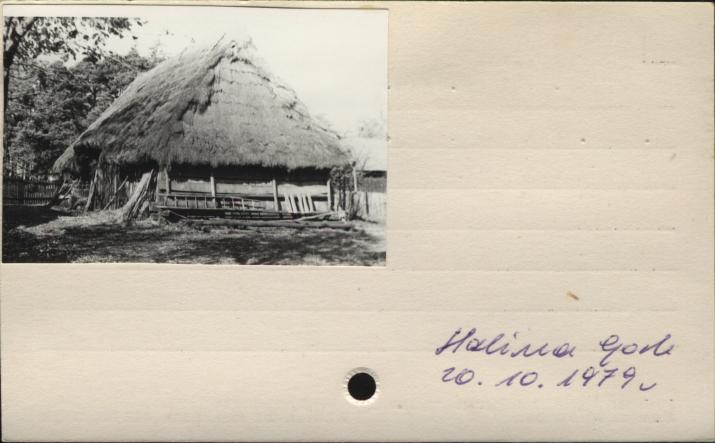 Halina Gork
20. 10. 1979r